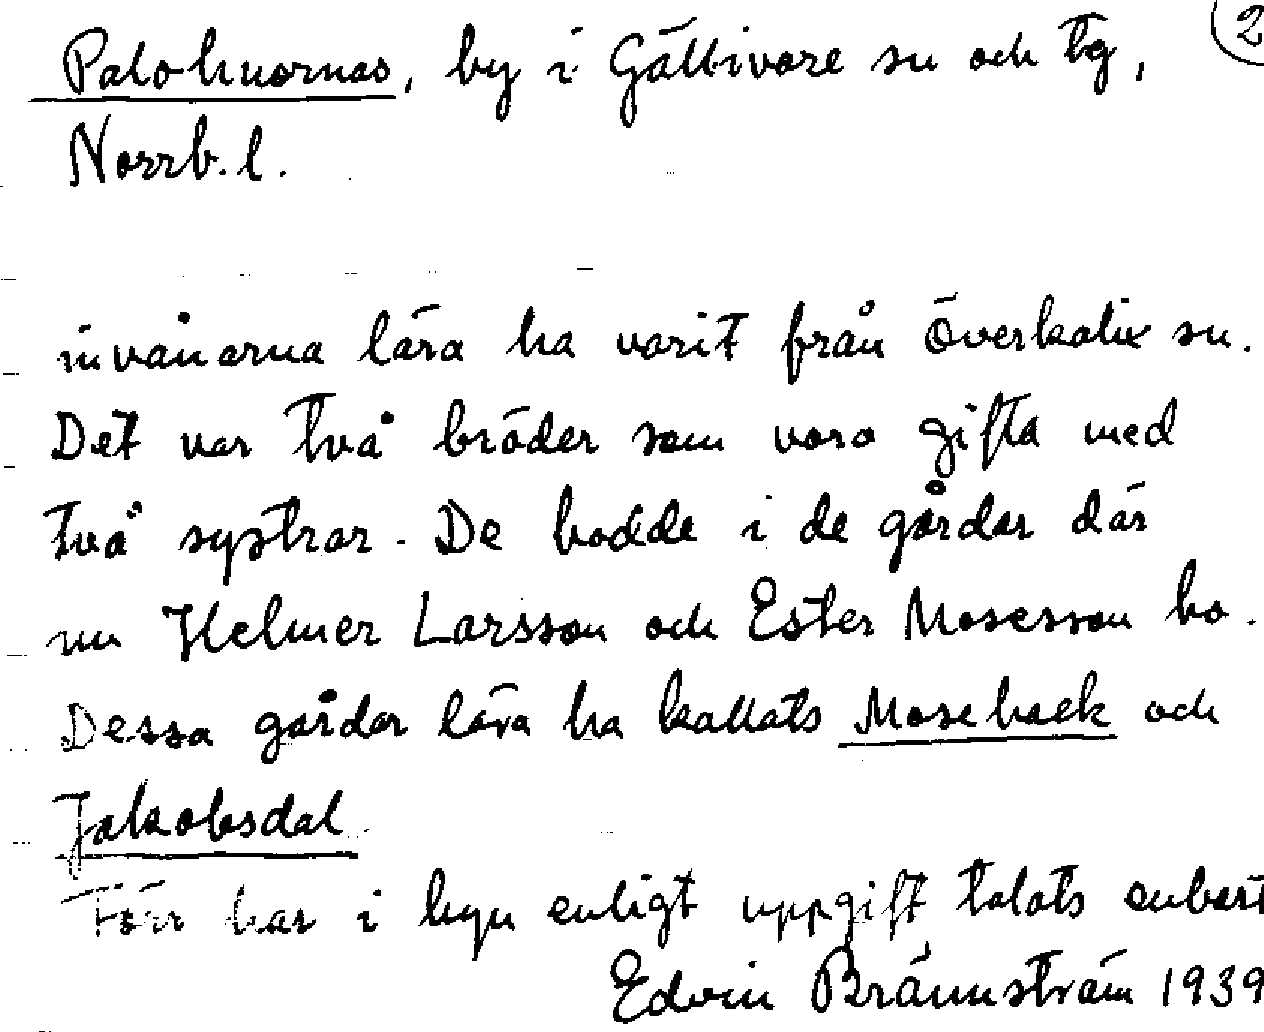 Palohuornas, by i Gällivare sn och tg, 2
Norrb. l.
invånarna lära ha varit från Överkalix sn.
Det var två bröder som voro gifta med
två systrar. De bodde i de gårdar där
nu Helmer Larsson och Ester Mosesson bo.
Dessa gårdar lära ha kallats Moseback och
Jakobsdal.
Förr har i byn enligt uppgift talats enbart
Edvin Brännström 1939